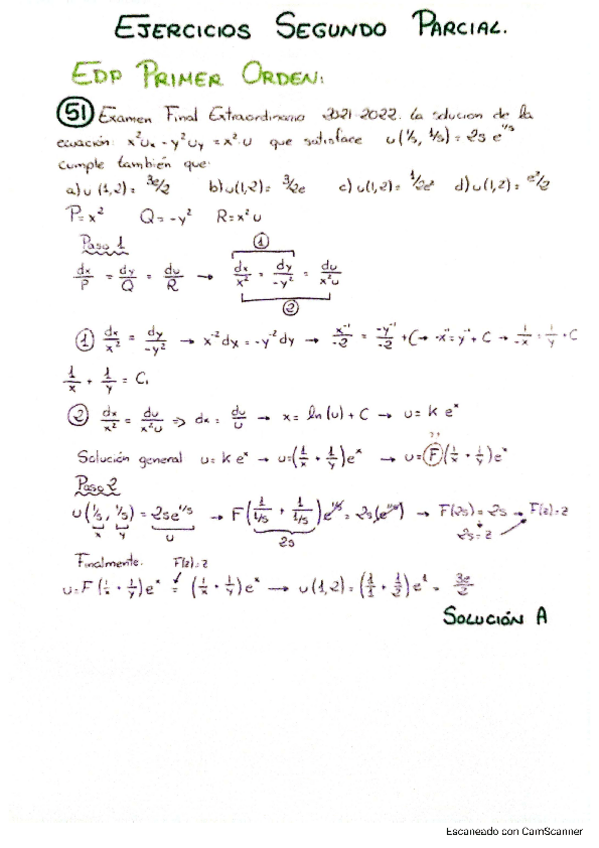 EJERCICIOS SEGUNDO PARCIAL.
EDP PRIMER ORDEN:
51 Examen Final Extraordinario 2021-2022. La solucion de la
ecuación: x²ux - y²uy = x²·u que satisface u(1/s, 1/s) = 2s e^1/s
cumple también que:
a) u(1,2) = 3e/2 b) u(1,2) = 3/2e c) u(1,2) = 1/2e² d) u(1,2) = e²/2
P = x² Q = -y² R = x²u
Paso 1
dx/P = dy/Q = du/R → dx/x² = dy/-y² = du/x²u
①
②
① dx/x² = dy/-y² → x⁻²dx = -y⁻²dy → x⁻¹/-2 = -y⁻¹/-2 + C → -x⁻¹ = y⁻¹ + C → 1/-x = 1/y + C
1/x + 1/y = C₁
② dx/x² = du/x²u ⇒ dx = du/u → x = ln(u) + C → u = k eˣ
Solución general u = k eˣ → u = (1/x + 1/y)eˣ → u = F(1/x + 1/y)eˣ
Paso 2
u(1/s, 1/s) = 2s e^1/s → F(1/1/s + 1/1/s)e^1/s = 2s(e^1/s) → F(2s) = 2s → F(z) = z
x y u 2s 2s = z
Finalmente: F(z) = z
u = F(1/x + 1/y)eˣ = (1/x + 1/y)eˣ → u(1,2) = (1/1 + 1/2)e¹ = 3e/2
SOLUCIÓN A
Escaneado con CamScanner